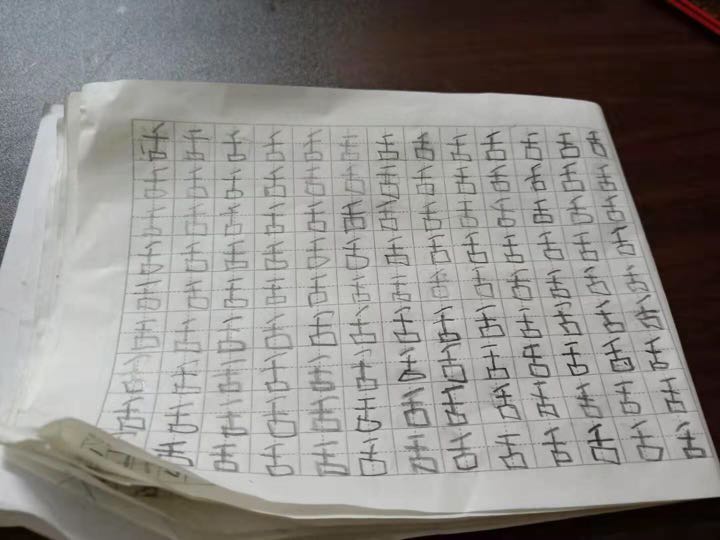 舌舌舌舌舌舌舌舌舌
舌舌舌舌舌舌舌舌舌
舌舌舌舌舌舌舌舌舌
舌舌舌舌舌舌舌舌舌
舌舌舌舌舌舌舌舌舌
舌舌舌舌舌舌舌舌舌
舌舌舌舌舌舌舌舌舌
舌舌舌舌舌舌舌舌舌
舌舌舌舌舌舌舌舌舌
舌舌舌舌舌舌舌舌舌
舌舌舌舌舌舌舌舌舌
舌舌舌舌舌舌舌舌舌
舌舌舌舌舌舌舌舌